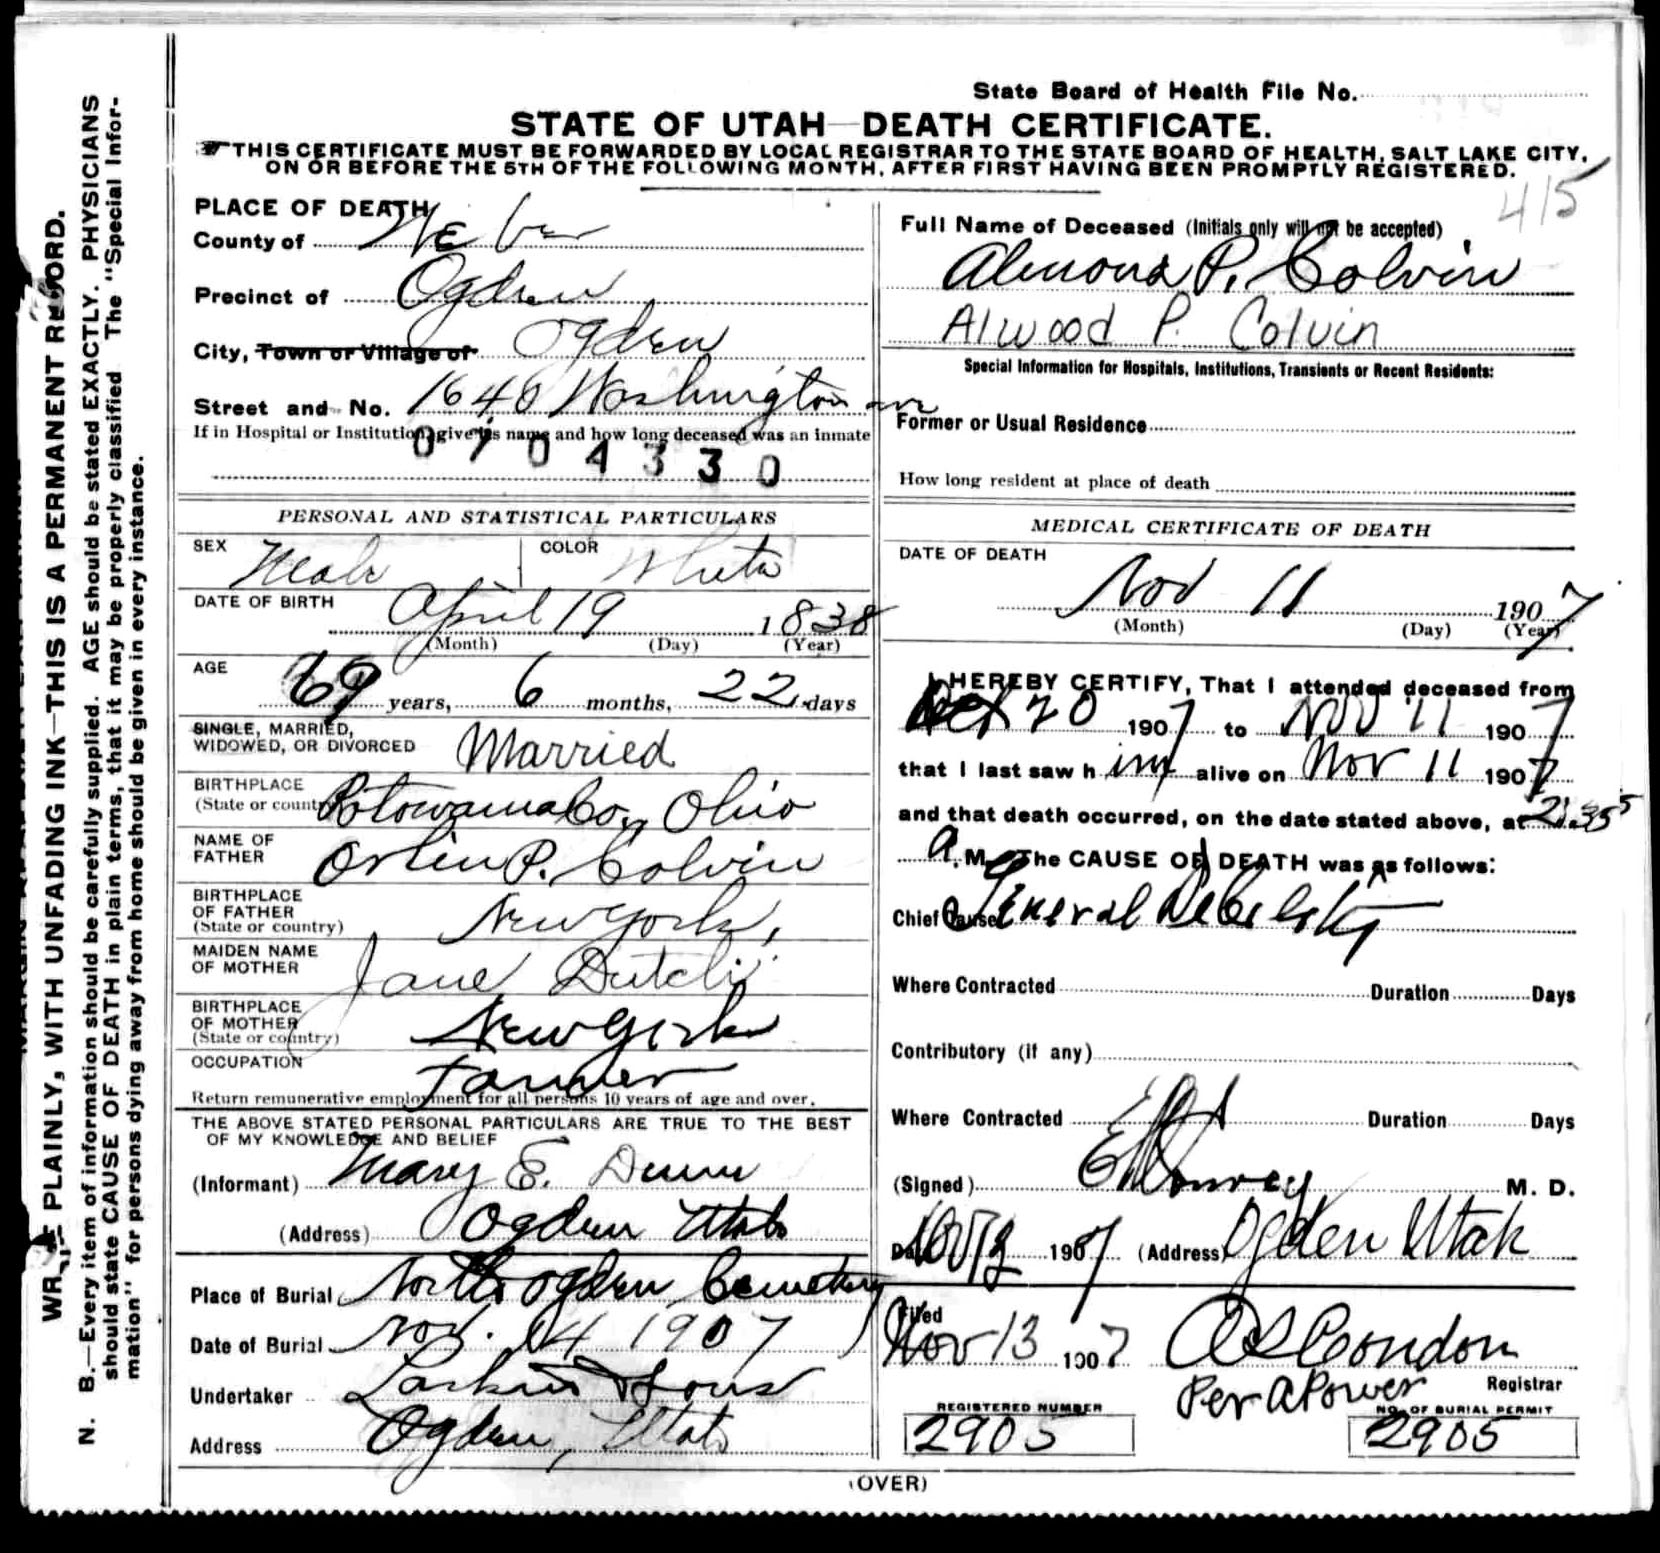 State Board of Health File No.
STATE OF UTAH—DEATH CERTIFICATE.
THIS CERTIFICATE MUST BE FORWARDED BY LOCAL REGISTRAR TO THE STATE BOARD OF HEALTH, SALT LAKE CITY,
ON OR BEFORE THE 5TH OF THE FOLLOWING MONTH, AFTER FIRST HAVING BEEN PROMPTLY REGISTERED.
415
WRITE PLAINLY, WITH UNFADING INK—THIS IS A PERMANENT RECORD.
N. B.—Every item of information should be carefully supplied. AGE should be stated EXACTLY. PHYSICIANS
should state CAUSE OF DEATH in plain terms, that it may be properly classified The "Special Infor-
mation" for persons dying away from home should be given in every instance.
PLACE OF DEATH
County of Weber
Precinct of Ogden
City, Town or Village of Ogden
Street and No. 1640 Washington ave
If in Hospital or Institution, give its name and how long deceased was an inmate
0704330
PERSONAL AND STATISTICAL PARTICULARS
SEX Male COLOR White
DATE OF BIRTH April 19 1838
(Month) (Day) (Year)
AGE 69 years, 6 months, 22 days
SINGLE, MARRIED,
WIDOWED, OR DIVORCED Married
BIRTHPLACE
(State or country) Potowama Co, Ohio
NAME OF
FATHER Orlin P. Colvin
BIRTHPLACE
OF FATHER
(State or country) New York,
MAIDEN NAME
OF MOTHER Jane
BIRTHPLACE
OF MOTHER
(State or country) New York
OCCUPATION Farmer
Return remunerative employment for all persons 10 years of age and over.
THE ABOVE STATED PERSONAL PARTICULARS ARE TRUE TO THE BEST
OF MY KNOWLEDGE AND BELIEF
(Informant) Mary E. Dunn
(Address) Ogden Utah
Place of Burial North Ogden Cemetery
Date of Burial Nov. 14 1907
Undertaker Larkin & Sons
Address Ogden, Utah
Full Name of Deceased (Initials only will not be accepted)
Almond P. Colvin
Alwood P. Colvin
Special Information for Hospitals, Institutions, Transients or Recent Residents:
Former or Usual Residence
How long resident at place of death
MEDICAL CERTIFICATE OF DEATH
DATE OF DEATH
Nov 11 1907
(Month) (Day) (Year)
I HEREBY CERTIFY, That I attended deceased from
Oct 20 1907 to Nov 11 1907
that I last saw him alive on Nov 11 1907
and that death occurred, on the date stated above, at 2:35
a. M. The CAUSE OF DEATH was as follows:
Chief Cause General Debility
Where Contracted Duration Days
Contributory (if any)
Where Contracted Duration Days
(Signed) M. D.
Date 1907 (Address) Ogden Utah
Filed
Nov 13 1907 Condon
Registrar
Per A Power
REGISTERED NUMBER
2905
NO. OF BURIAL PERMIT
2905
(OVER)